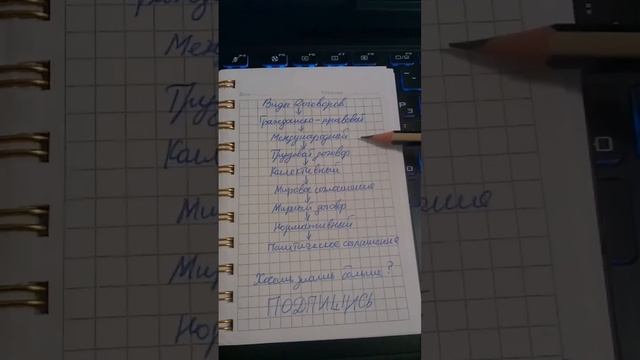 Виды договоров
Гражданско-правовой
Международный
Трудовой договор
Коллективный
Мировое соглашение
Мирный договор
Нормативный
Политическое соглашение
Хочешь узнать больше?
ПОДПИШИСЬ